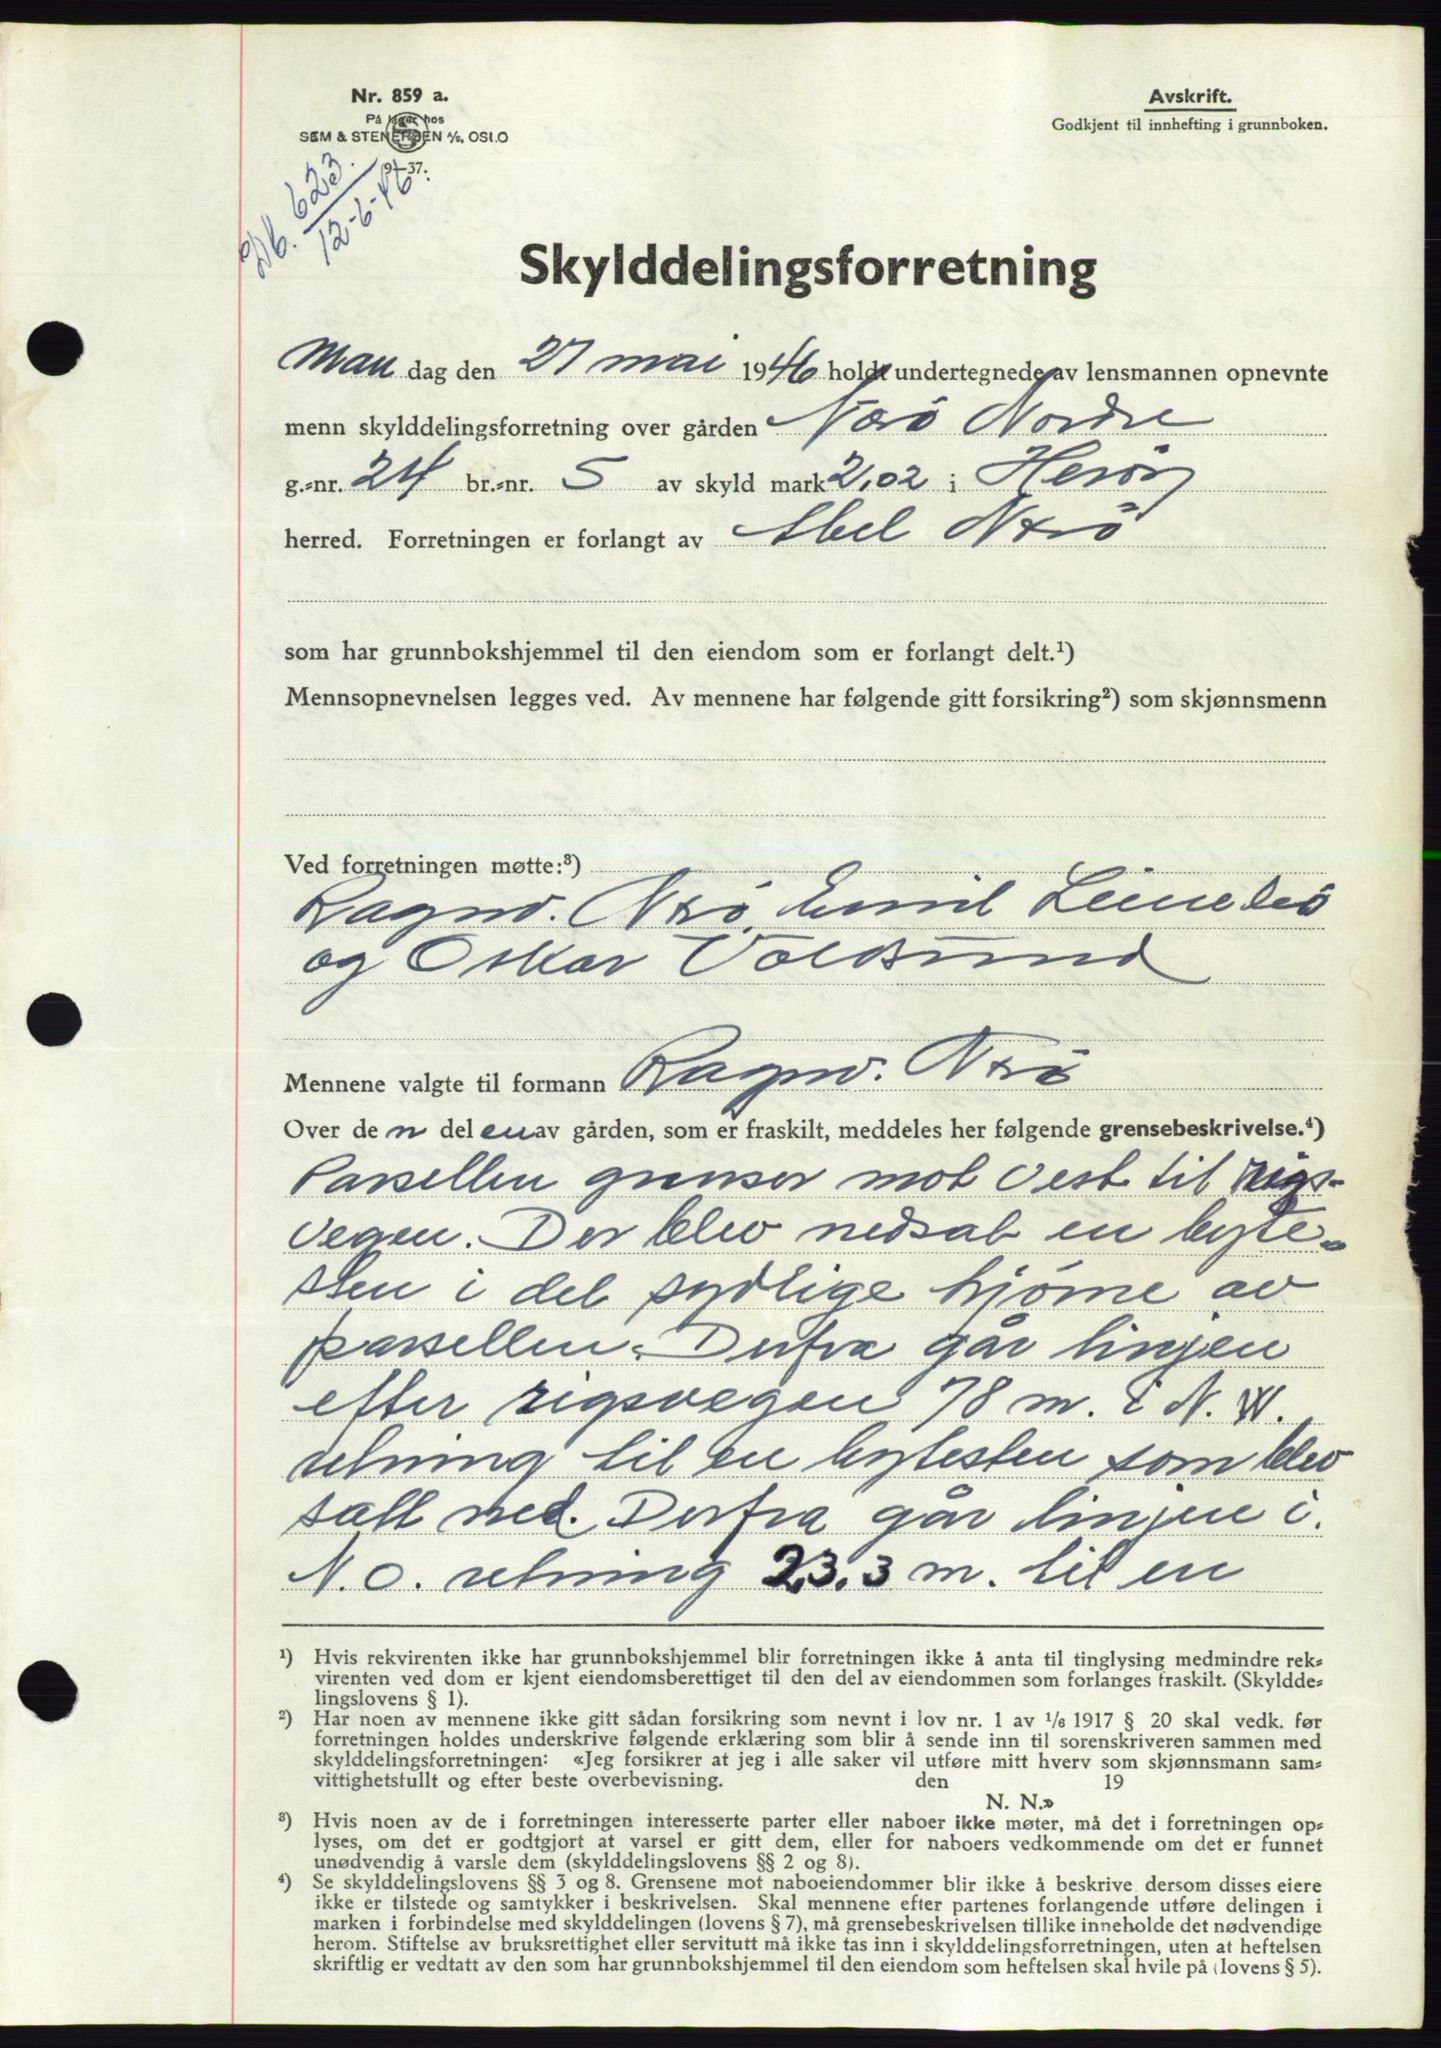 Nr. 859 a.
På lager hos
SEM & STENERSEN A/S, OSLO
9-37.
Db. 623.
12-6-46
Avskrift.
Godkjent til innhefting i grunnboken.
Skylddelingsforretning
Man dag den 27 mai 1946 holdt undertegnede av lensmannen opnevnte
menn skylddelingsforretning over gården Nærö Nordre
g.=nr. 24 br.=nr. 5 av skyld mark 2,02 i Heröy
herred. Forretningen er forlangt av Abel Nærö
som har grunnbokshjemmel til den eiendom som er forlangt delt.¹)
Mennsopnevnelsen legges ved. Av mennene har følgende gitt forsikring²) som skjønnsmenn
Ved forretningen møtte:³)
Ragnv. Nærö, Emil Leinebö
og Oskar Voldsund
Mennene valgte til formann Ragnv. Nærö
Over de n del en av gården, som er fraskilt, meddeles her følgende grensebeskrivelse.⁴)
Parsellen grenser mot vest til rigs-
vegen. Der blev nedsat en byte-
sten i det sydlige hjörne av
parsellen. Derfra går linjen
efter rigsvegen 78 m. i N. W.
retning til en bytesten som blev
satt ned. Derfra går linjen i.
N.O. retning 23.3 m. til en
¹) Hvis rekvirenten ikke har grunnbokshjemmel blir forretningen ikke å anta til tinglysing medmindre rek=
virenten ved dom er kjent eiendomsberettiget til den del av eiendommen som forlanges fraskilt. (Skyldde=
lingslovens § 1).
²) Har noen av mennene ikke gitt sådan forsikring som nevnt i lov nr. 1 av 1/6 1917 § 20 skal vedk. før
forretningen holdes underskrive følgende erklæring som blir å sende inn til sorenskriveren sammen med
skylddelingsforretningen: «Jeg forsikrer at jeg i alle saker vil utføre mitt hverv som skjønnsmann sam=
vittighetsfullt og efter beste overbevisning. den 19
N. N.»
³) Hvis noen av de i forretningen interesserte parter eller naboer ikke møter, må det i forretningen op=
lyses, om det er godtgjort at varsel er gitt dem, eller for naboers vedkommende om det er funnet
unødvendig å varsle dem (skylddelingslovens §§ 2 og 8).
⁴) Se skylddelingslovens §§ 3 og 8. Grensene mot naboeiendommer blir ikke å beskrive dersom disses eiere
ikke er tilstede og samtykker i beskrivelsen. Skal mennene efter partenes forlangende utføre delingen i
marken i forbindelse med skylddelingen (lovens § 7), må grensebeskrivelsen tillike inneholde det nødvendige
herom. Stiftelse av bruksrettighet eller servitutt må ikke tas inn i skylddelingsforretningen, uten at heftelsen
skriftlig er vedtatt av den som har grunnbokshjemmel til den eiendom som heftelsen skal hvile på (lovens § 5).